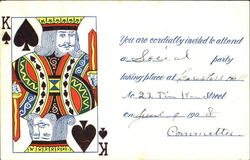 K
You are cordially invited to attend
a Social party
taking place at
No 22 Street
on June 190 8
Committee
K